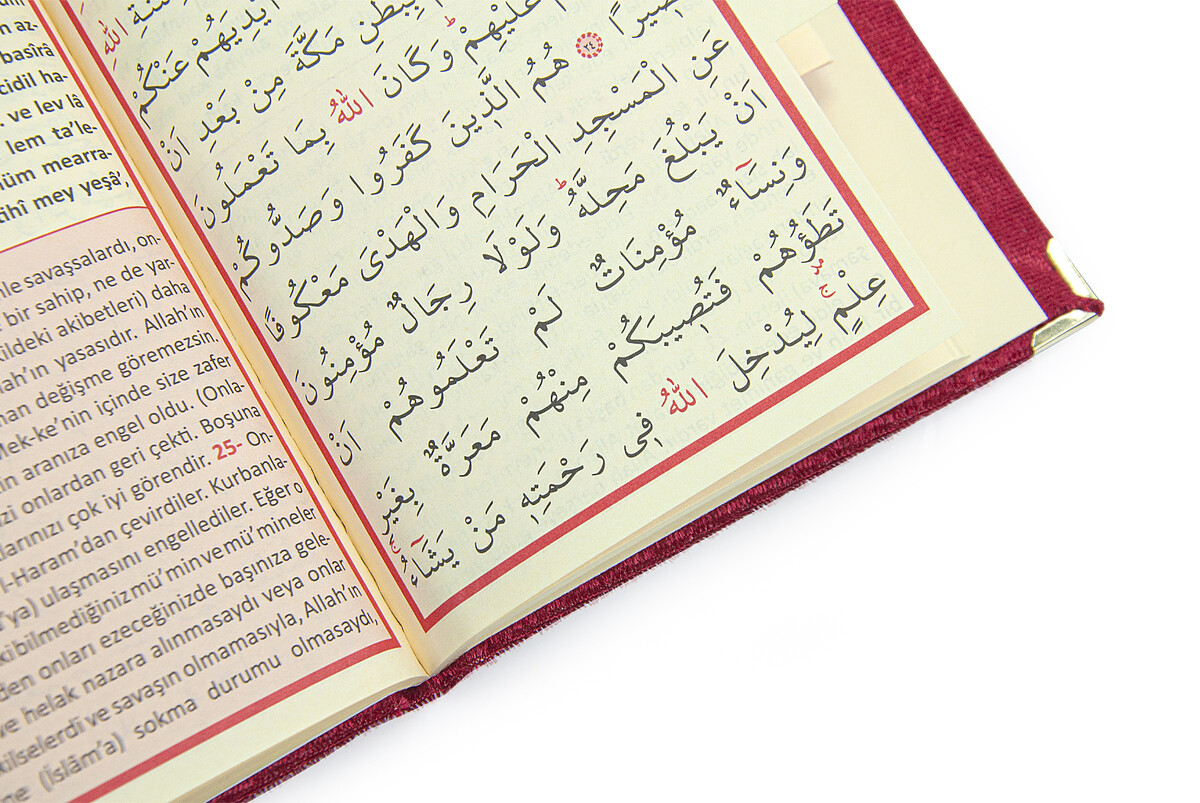 اللّٰهِ
اَيْدِيَهُمْ عَنْكُمْ
بِبَطْنِ مَكَّةَ مِنْ بَعْدِ اَنْ
عَلَيْهِمْ وَكَانَ اللّٰهُ بِمَا تَعْمَلُونَ
بَصِيرًا ٢٤ هُمُ الَّذِينَ كَفَرُوا وَصَدُّوكُمْ
عَنِ الْمَسْجِدِ الْحَرَامِ وَالْهَدْىَ مَعْكُوفًا
اَنْ يَبْلُغَ مَحِلَّهُ وَلَوْلَا رِجَالٌ مُؤْمِنُونَ
وَنِسَٓاءٌ مُؤْمِنَاتٌ لَمْ تَعْلَمُوهُمْ اَنْ
تَطَؤُ۫هُمْ فَتُصِيبَكُمْ مِنْهُمْ مَعَرَّةٌ بِغَيْرِ
عِلْمٍ لِيُدْخِلَ اللّٰهُ فِى رَحْمَتِهِ مَنْ يَشَٓاءُ
basîrâ
cidil ha-
ve lev lâ
lem ta'le-
mearra-
mey yeşâ',
savaşsalardı, on-
bir sahip, ne de yar-
akibetleri) daha
yasasıdır. Allah'ın
değişme göremezsin.
Mek-ke'nin içinde size zafer
aranıza engel oldu. (Onla-
onlardan geri çekti. Boşuna
çok iyi görendir. 25- On-
Haram'dan çevirdiler. Kurbanla-
ulaşmasını engellediler. Eğer o
bilmediğiniz mü'min ve mü'mineler
onları ezeceğinizde başınıza gele-
helak nazara alınmasaydı veya onlar
ve savaşın olmamasıyla, Allah'ın
(İslâm'a) sokma durumu olmasaydı,